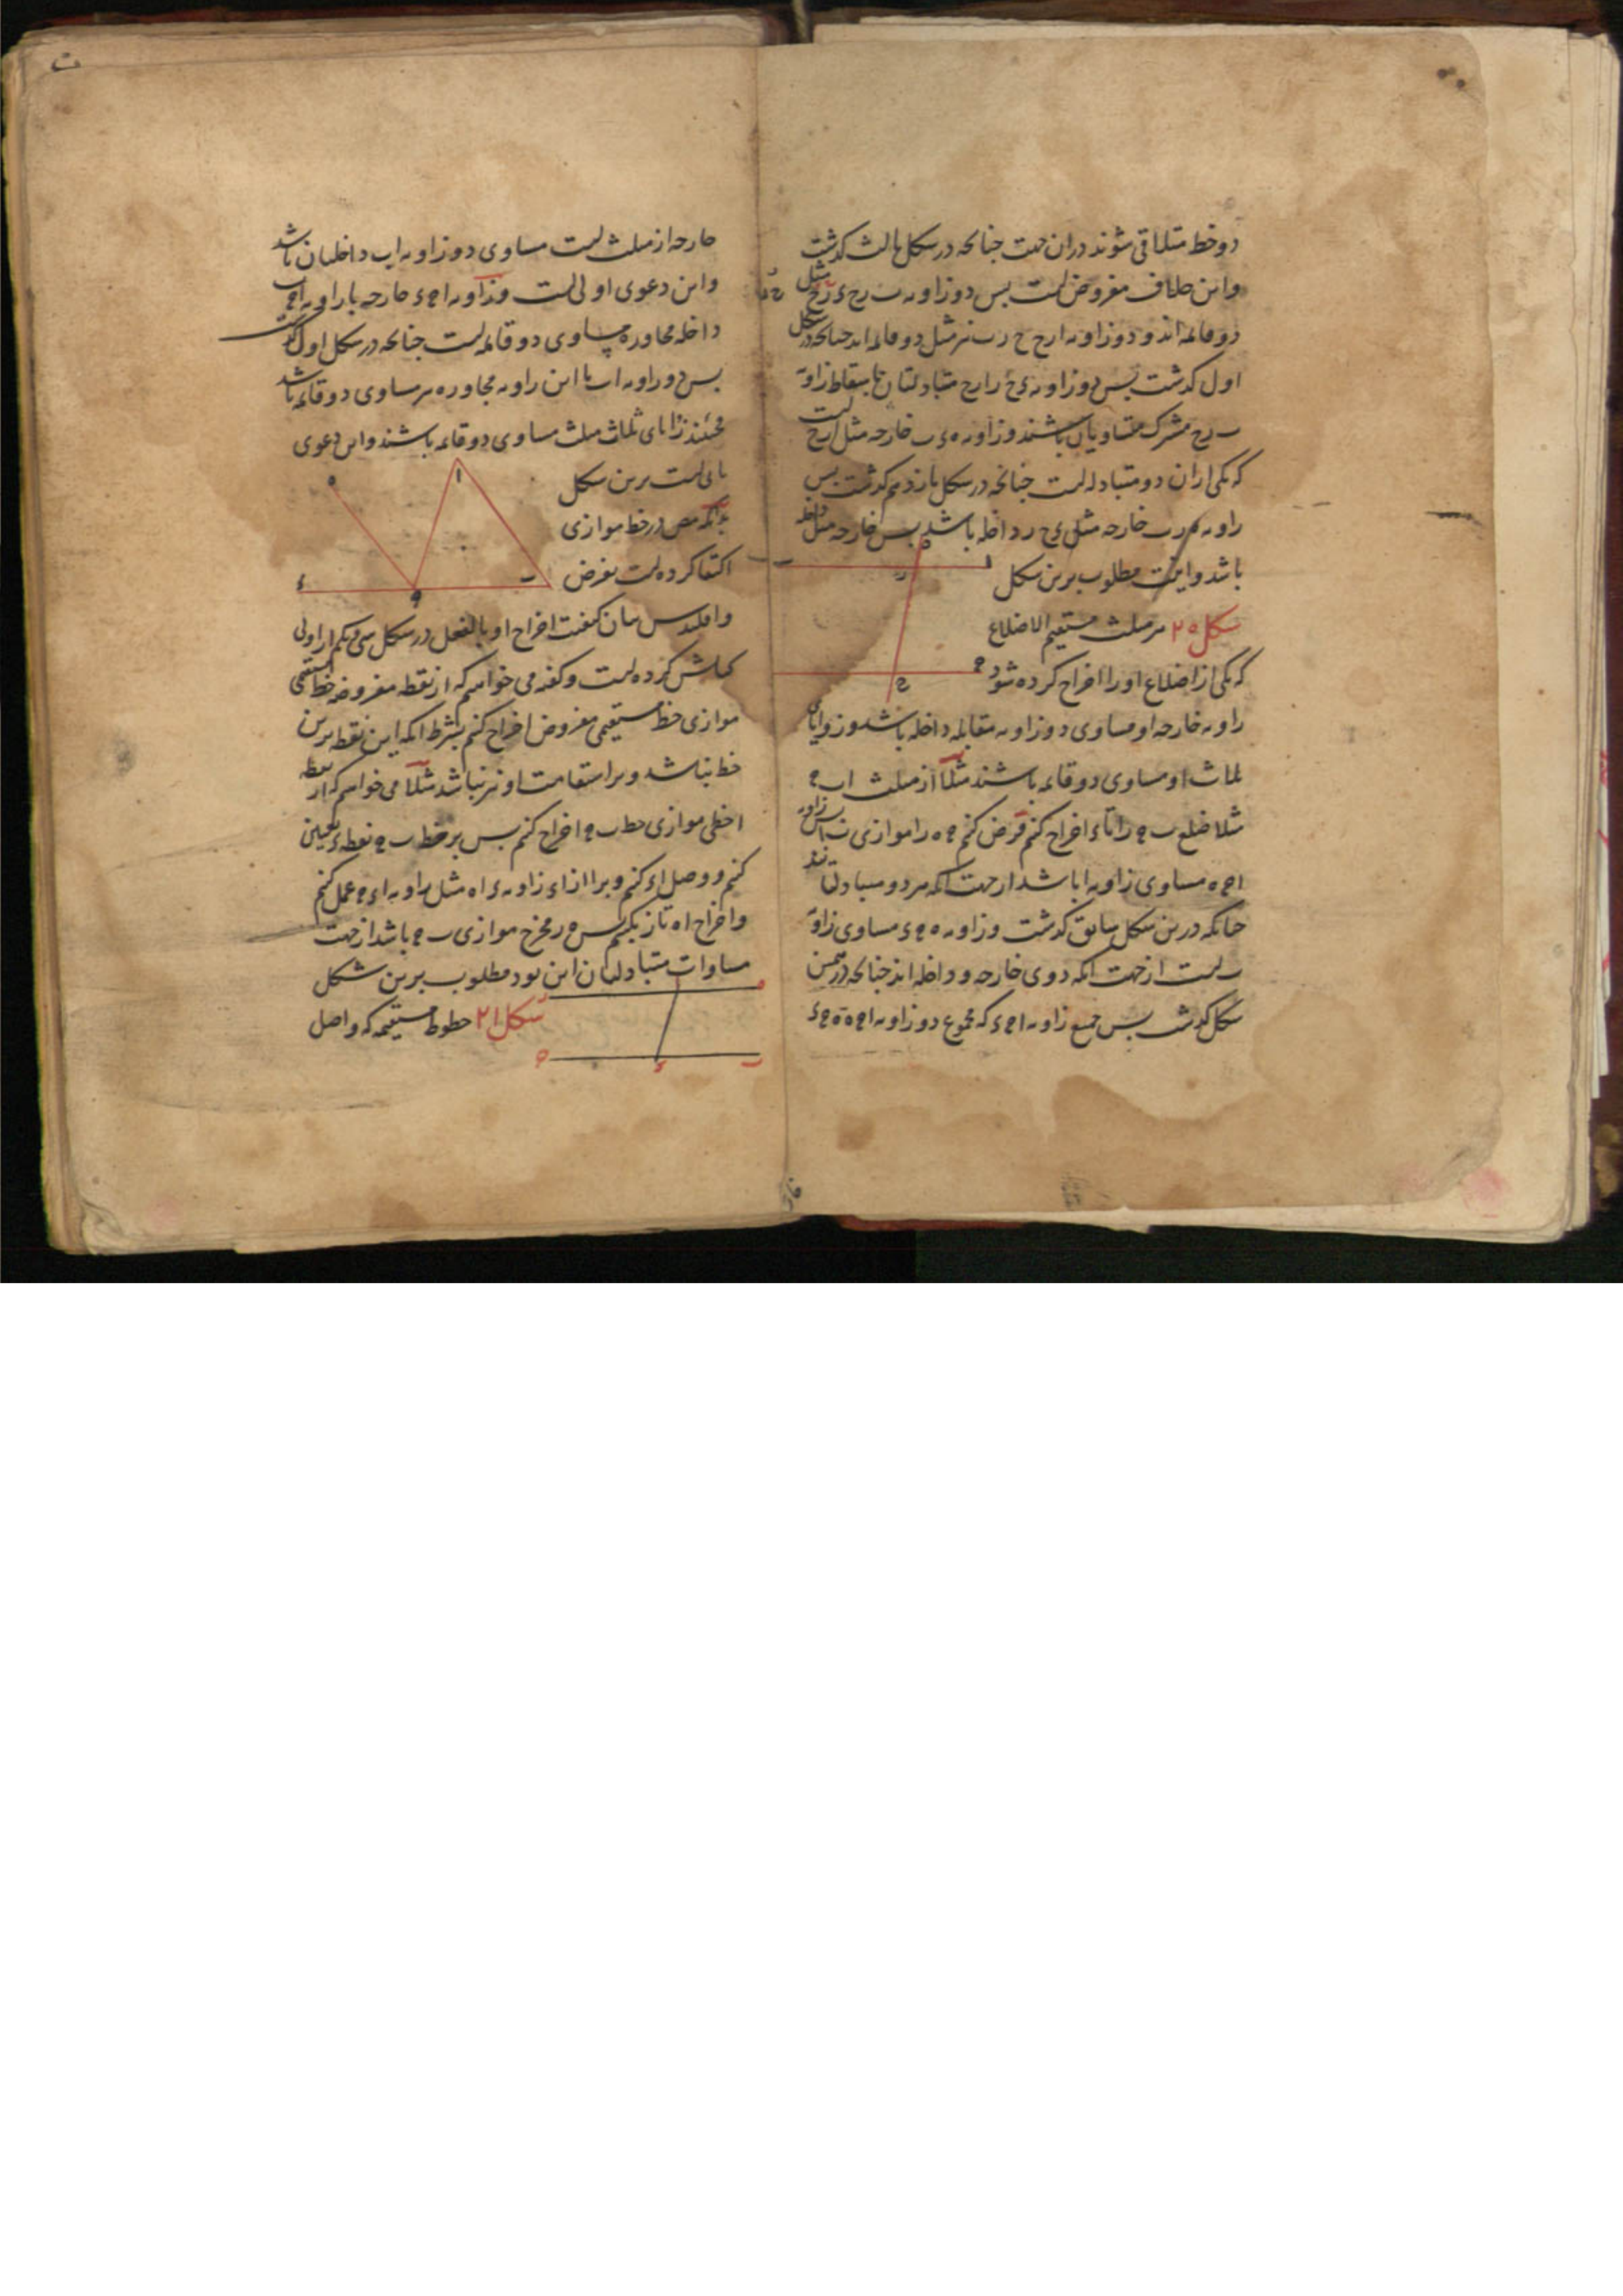 دو خط متلاقی شوند دران جهت چنانکه در شکل ثالث گذشت
واین خلاف مفروض است بس دو زاویه ب رح ء رح مثل
دو قائمه اند و دو زاویه ارح ح رب نیز مثل دو قائمه اند چنانکه در شکل
اول گذشت بس دو زاویه رح ارح متبادلتان باسقاط زاویه
ب رح مشترک متساویان باشند و زاویه ه رب خارجه مثل ارح است
که یکی از ان دو متبادله است چنانکه در شکل بازدهم گذشت بس
زاویه ه رب خارجه مثل ء ح ر داخله باشد بس خارجه مثل داخله
باشد و اینست مطلوب برین شکل
شکل ٢٥ هر مثلث مستقیم الاضلاع
که یکی از اضلاع او را اخراج کرده شود
زاویه خارجه او مساوی دو زاویه مقابله داخله باشد و زوایای
ثلاث او مساوی دو قائمه باشند مثلا از مثلث اب ج
مثلا ضلع ب ج را تا ء اخراج کنم فرض کنم ج ه را موازی ب ا بس زاویه
ا ج ه مساوی زاویه ا باشد از جهت انکه هر دو متبادلتانند
چنانکه درین شکل سابق گذشت و زاویه ه ج ء مساوی زاویه
ب است از جهت انکه دوی خارجه و داخله اند چنانکه در همین
شکل گذشت بس جمیع زاویه ا ج ء که مجموع دو زاویه ا ج ه ه ج ء
خارجه از مثلث است مساوی دو زاویه اب داخلتان باشد
واین دعوی اولی است و زاویه ا ج ء خارجه با زاویه ا ج ب
داخله مجاوره مساوی دو قائمه است چنانکه در شکل اول گذشت
بس دو زاویه اب با این زاویه مجاوره نیز مساوی دو قائمه باشد
فحینئذ زوایای ثلاث مثلث مساوی دو قائمه باشند و این دعوی
ثانی است برین شکل
بدانکه مص در خط موازی
اکتفا کرده است بفرض
و اقلیدس بیان کیفیت اخراج او بالفعل در شکل سی و یکم از اولی
کتابش کرده است و گفته می خواهیم که از نقطه مفروضه خط مستقیمی
موازی خط مستقیمی مفروض اخراج کنم بشرط انکه این نقطه برین
خط نباشد و بر استقامت او نیز نباشد مثلا می خواهیم که از نقطه
ا خطی موازی خط ب ج اخراج کنم بس بر خط ب ج نقطه ء تعیین
کنم و وصل اء کنم و بر ا از اء زاویه ء اه مثل زاویه اء ج عمل کنم
و اخراج اه تا ز بکنیم بس ه ر مخرج موازی ب ج باشد از جهت
مساوات متبادلتان این بود مطلوب برین شکل
شکل ٢١ خطوط مستقیمه که واصل